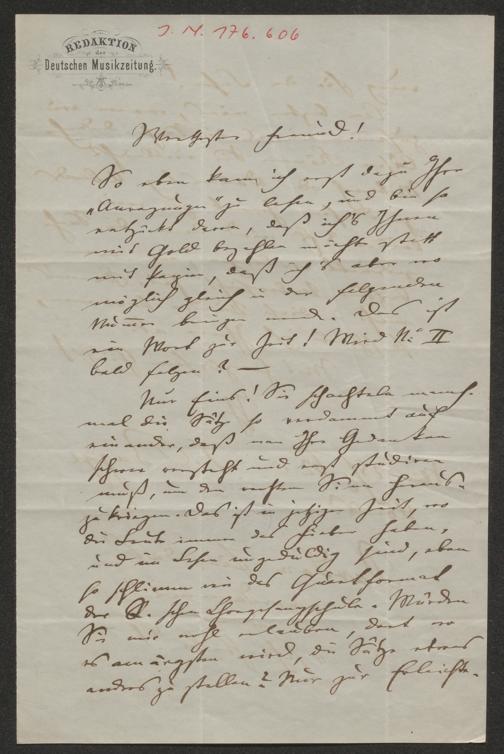 J. N. 176.606
REDAKTION
der
Deutschen Musikzeitung.
Werthester Freund!
So eben kam ich erst dazu Ihre
„Anregungen" zu lesen, und bin so
entzückt davon, daß ich's Ihnen
mit Gold bezahlen möchte statt
mit Papier, daß ich's aber wo
möglich gleich in der folgenden
Numer bringen werde. Das ist
ein Wort zur Zeit! Wird No II
bald folgen? —
Nur Eins! Sie schachteln manch-
mal die Sätze so verdammt auf
einander, daß man Ihre Gedanken
schwer versteht und erst studiren
muß, um den rechten Sinn heraus-
zukriegen. Das ist in jetziger Zeit, wo
die Leute immer das Fieber haben,
und im Lesen ungeduldig sind, eben
so schlimm wie das Quartformat
der schen Chorgesangschule. Würden
Sie mir wohl erlauben, dort wo
es am ärgsten wird, die Sätze etwas
anders zu stellen? Nur zur Erleichte-